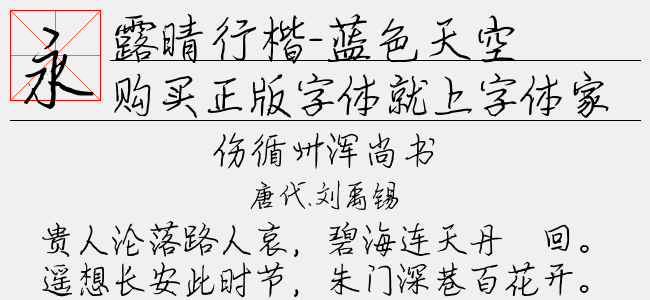 永
露晴行楷-蓝色天空
购买正版字体就上字体家
伤循州浑尚书
唐代.刘禹锡
贵人沦落路人哀，碧海连天丹 回。
遥想长安此时节，朱门深巷百花开。